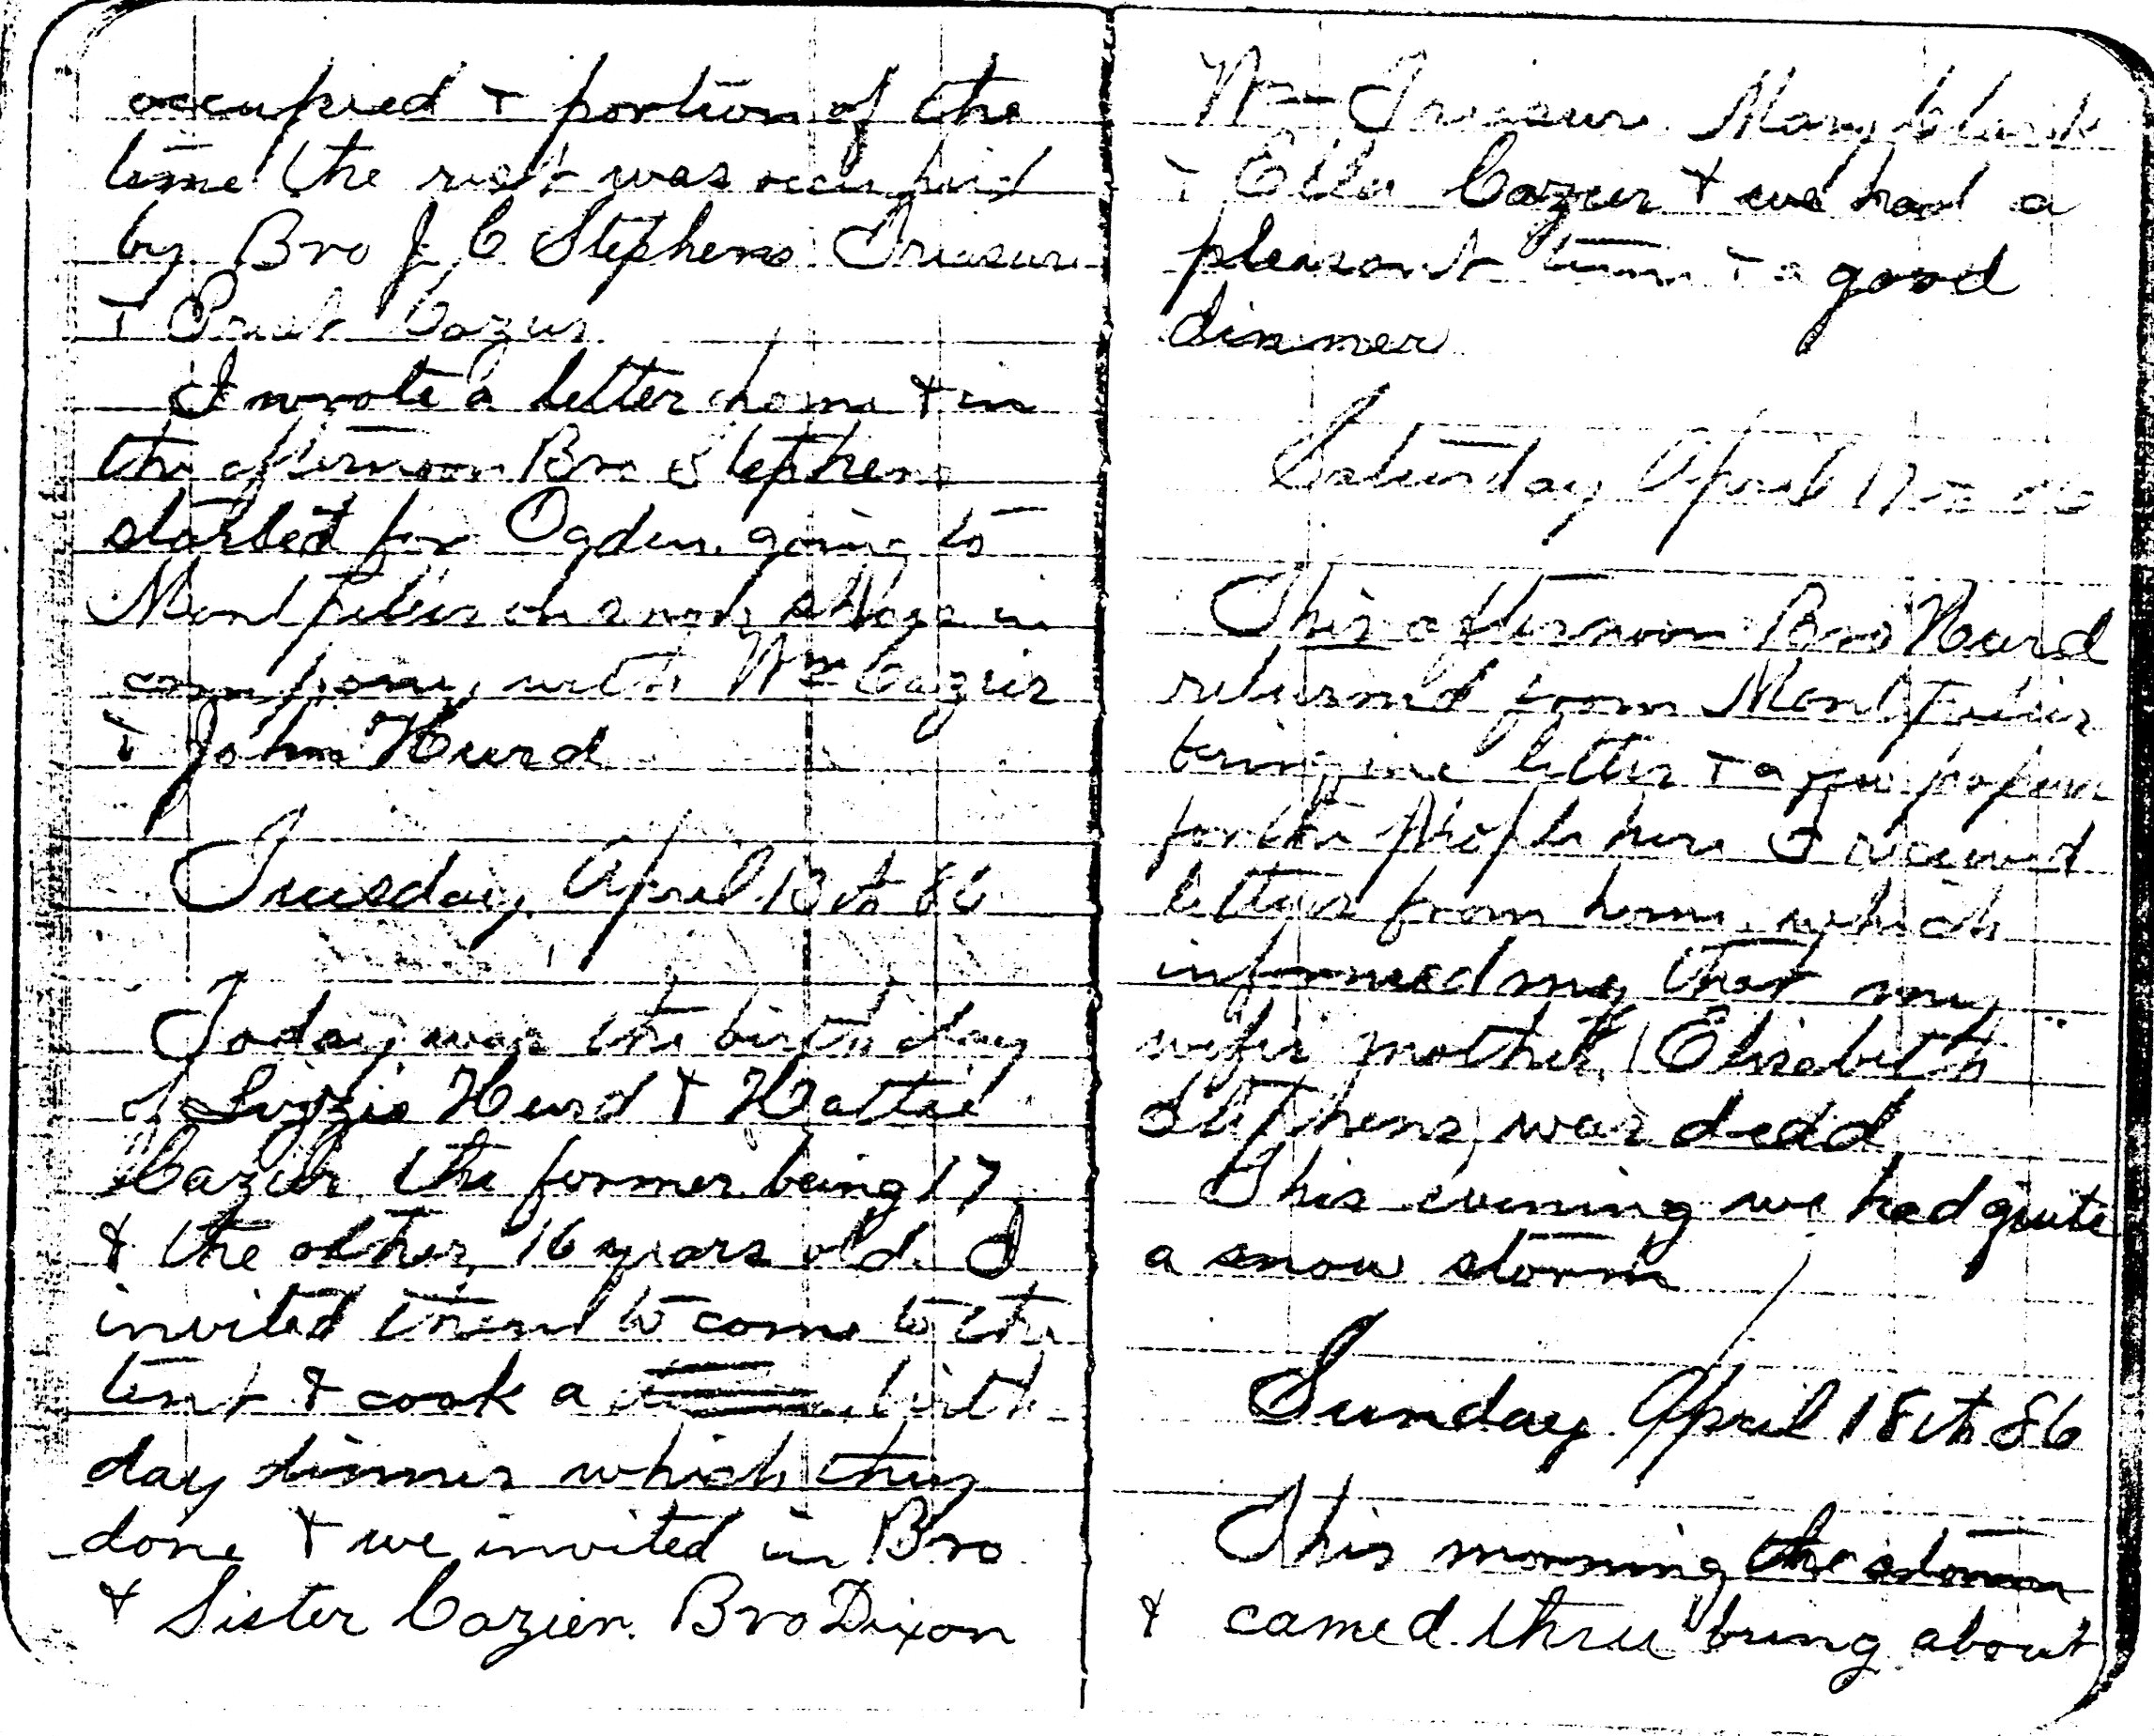 occupied & portion of the
time the rest was occupied
by Bro J. C Stephens
& Cazier
I wrote a letter home & in
the afternoon Bro Stephens
started for Ogden going to
Montpelier on snow shoes in
company with Wm Cazier
& John Hurd
Tuesday April 13th 86
Today was the birth day
of Lizzie Hurd & Hattie
Cazier the former being 17
& the other 16 years old. I
invited them to come to the
tent & cook a birth
day dinner which they
done & we invited in Bro
& Sister Cazier. Bro Dixon
Wm Mary Clark
& Ella Cazier & we had a
pleasant time & a good
dinner
Saturday April 17th 86
This afternoon Bro Hurd
returned from Montpelier
bringing letters & a few papers
for the people here I received
letters from home which
informed my that my
wifes mother (Elisebeth
Stephens) was dead
This evening we had quite
a snow storm
Sunday April 18th 86
This morning the storm
& camed. thru being about